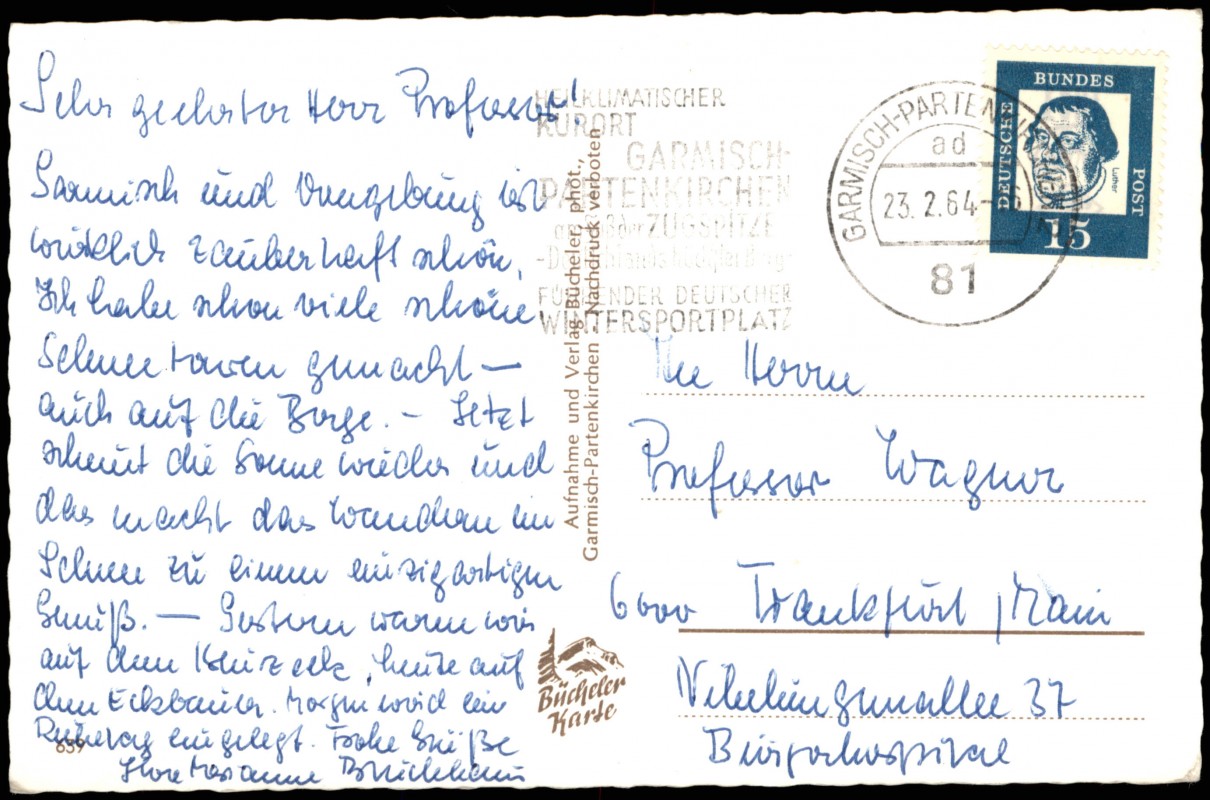 Sehr geehrter Herr Professor!
Garmisch und Umgebung ist
wirklich zauberhaft schön.
Ich habe schon viele schöne
Schneetouren gemacht —
auch auf die Berge. – Jetzt
scheint die Sonne wieder und
das macht das Wandern im
Schnee zu einem einzigartigen
Genuß. — Gestern waren wir
auf dem Kreuzeck, heute auf
dem Eckbauer. Morgen wird ein
Ruhetag eingelegt. Frohe Grüße
Ihre Marianne
659
HEILKLIMATISCHER
KURORT
GARMISCH-
PARTENKIRCHEN
am Fuß der ZUGSPITZE
-Deutschlands höchster Berg-
FÜHRENDER DEUTSCHER
WINTERSPORTPLATZ
Aufnahme und Verlag Bücheler, phot.,
Garmisch-Partenkirchen · Nachdruck verboten
Bücheler
Karte
GARMISCH-PARTENKIRCHEN
ad
23.2.64-16
81
DEUTSCHE
BUNDES
POST
Luther
15
Herrn
Professor Wagner
6000 Frankfurt/Main
Nibelungenallee 37
Bürgerhospital